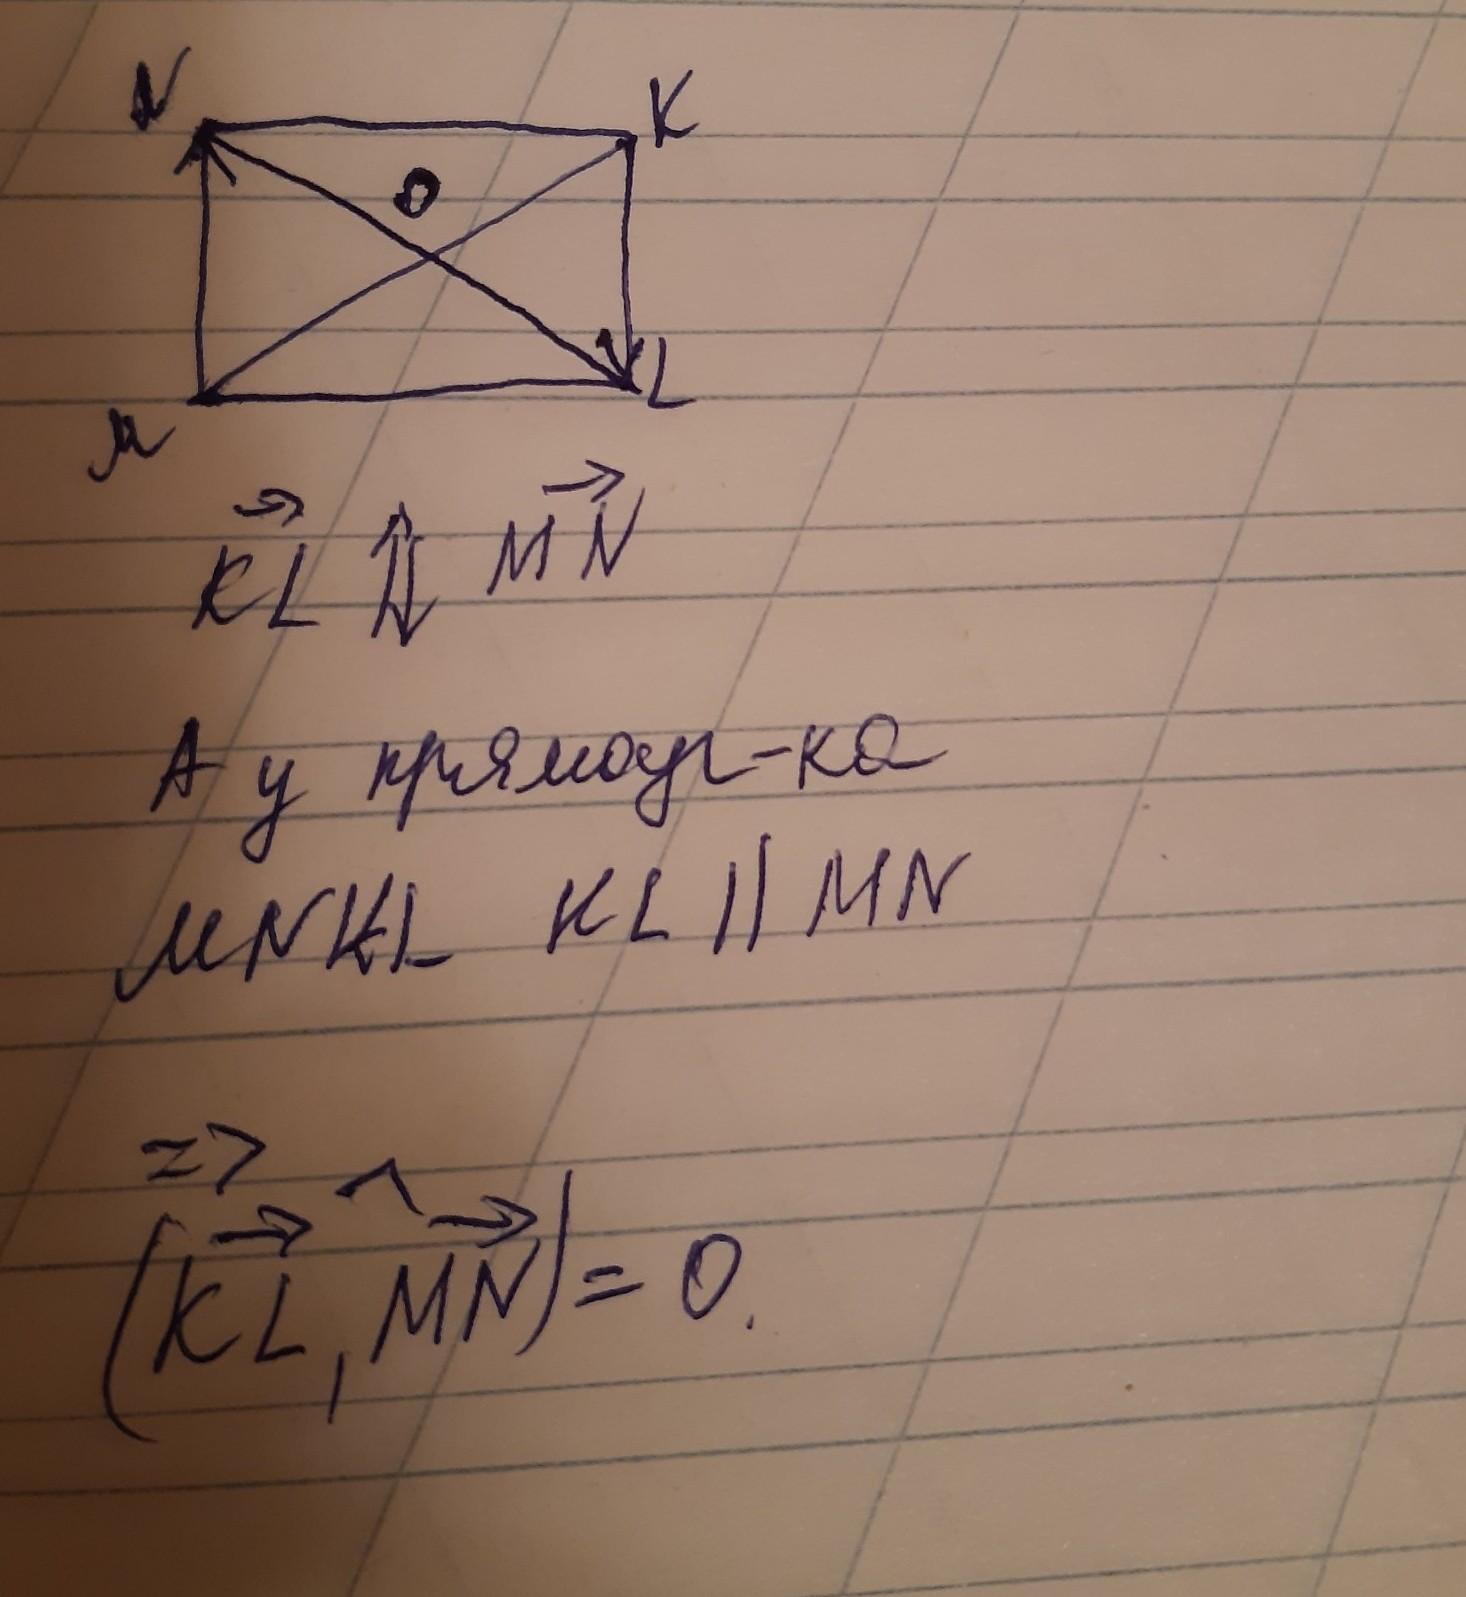 N K
O
M L
$\overrightarrow{KL} \uparrow\downarrow \overrightarrow{MN}$
А у прямоуг-ка
MNKL KL || MN
=>
$(\widehat{\overrightarrow{KL}, \overrightarrow{MN}}) = 0.$